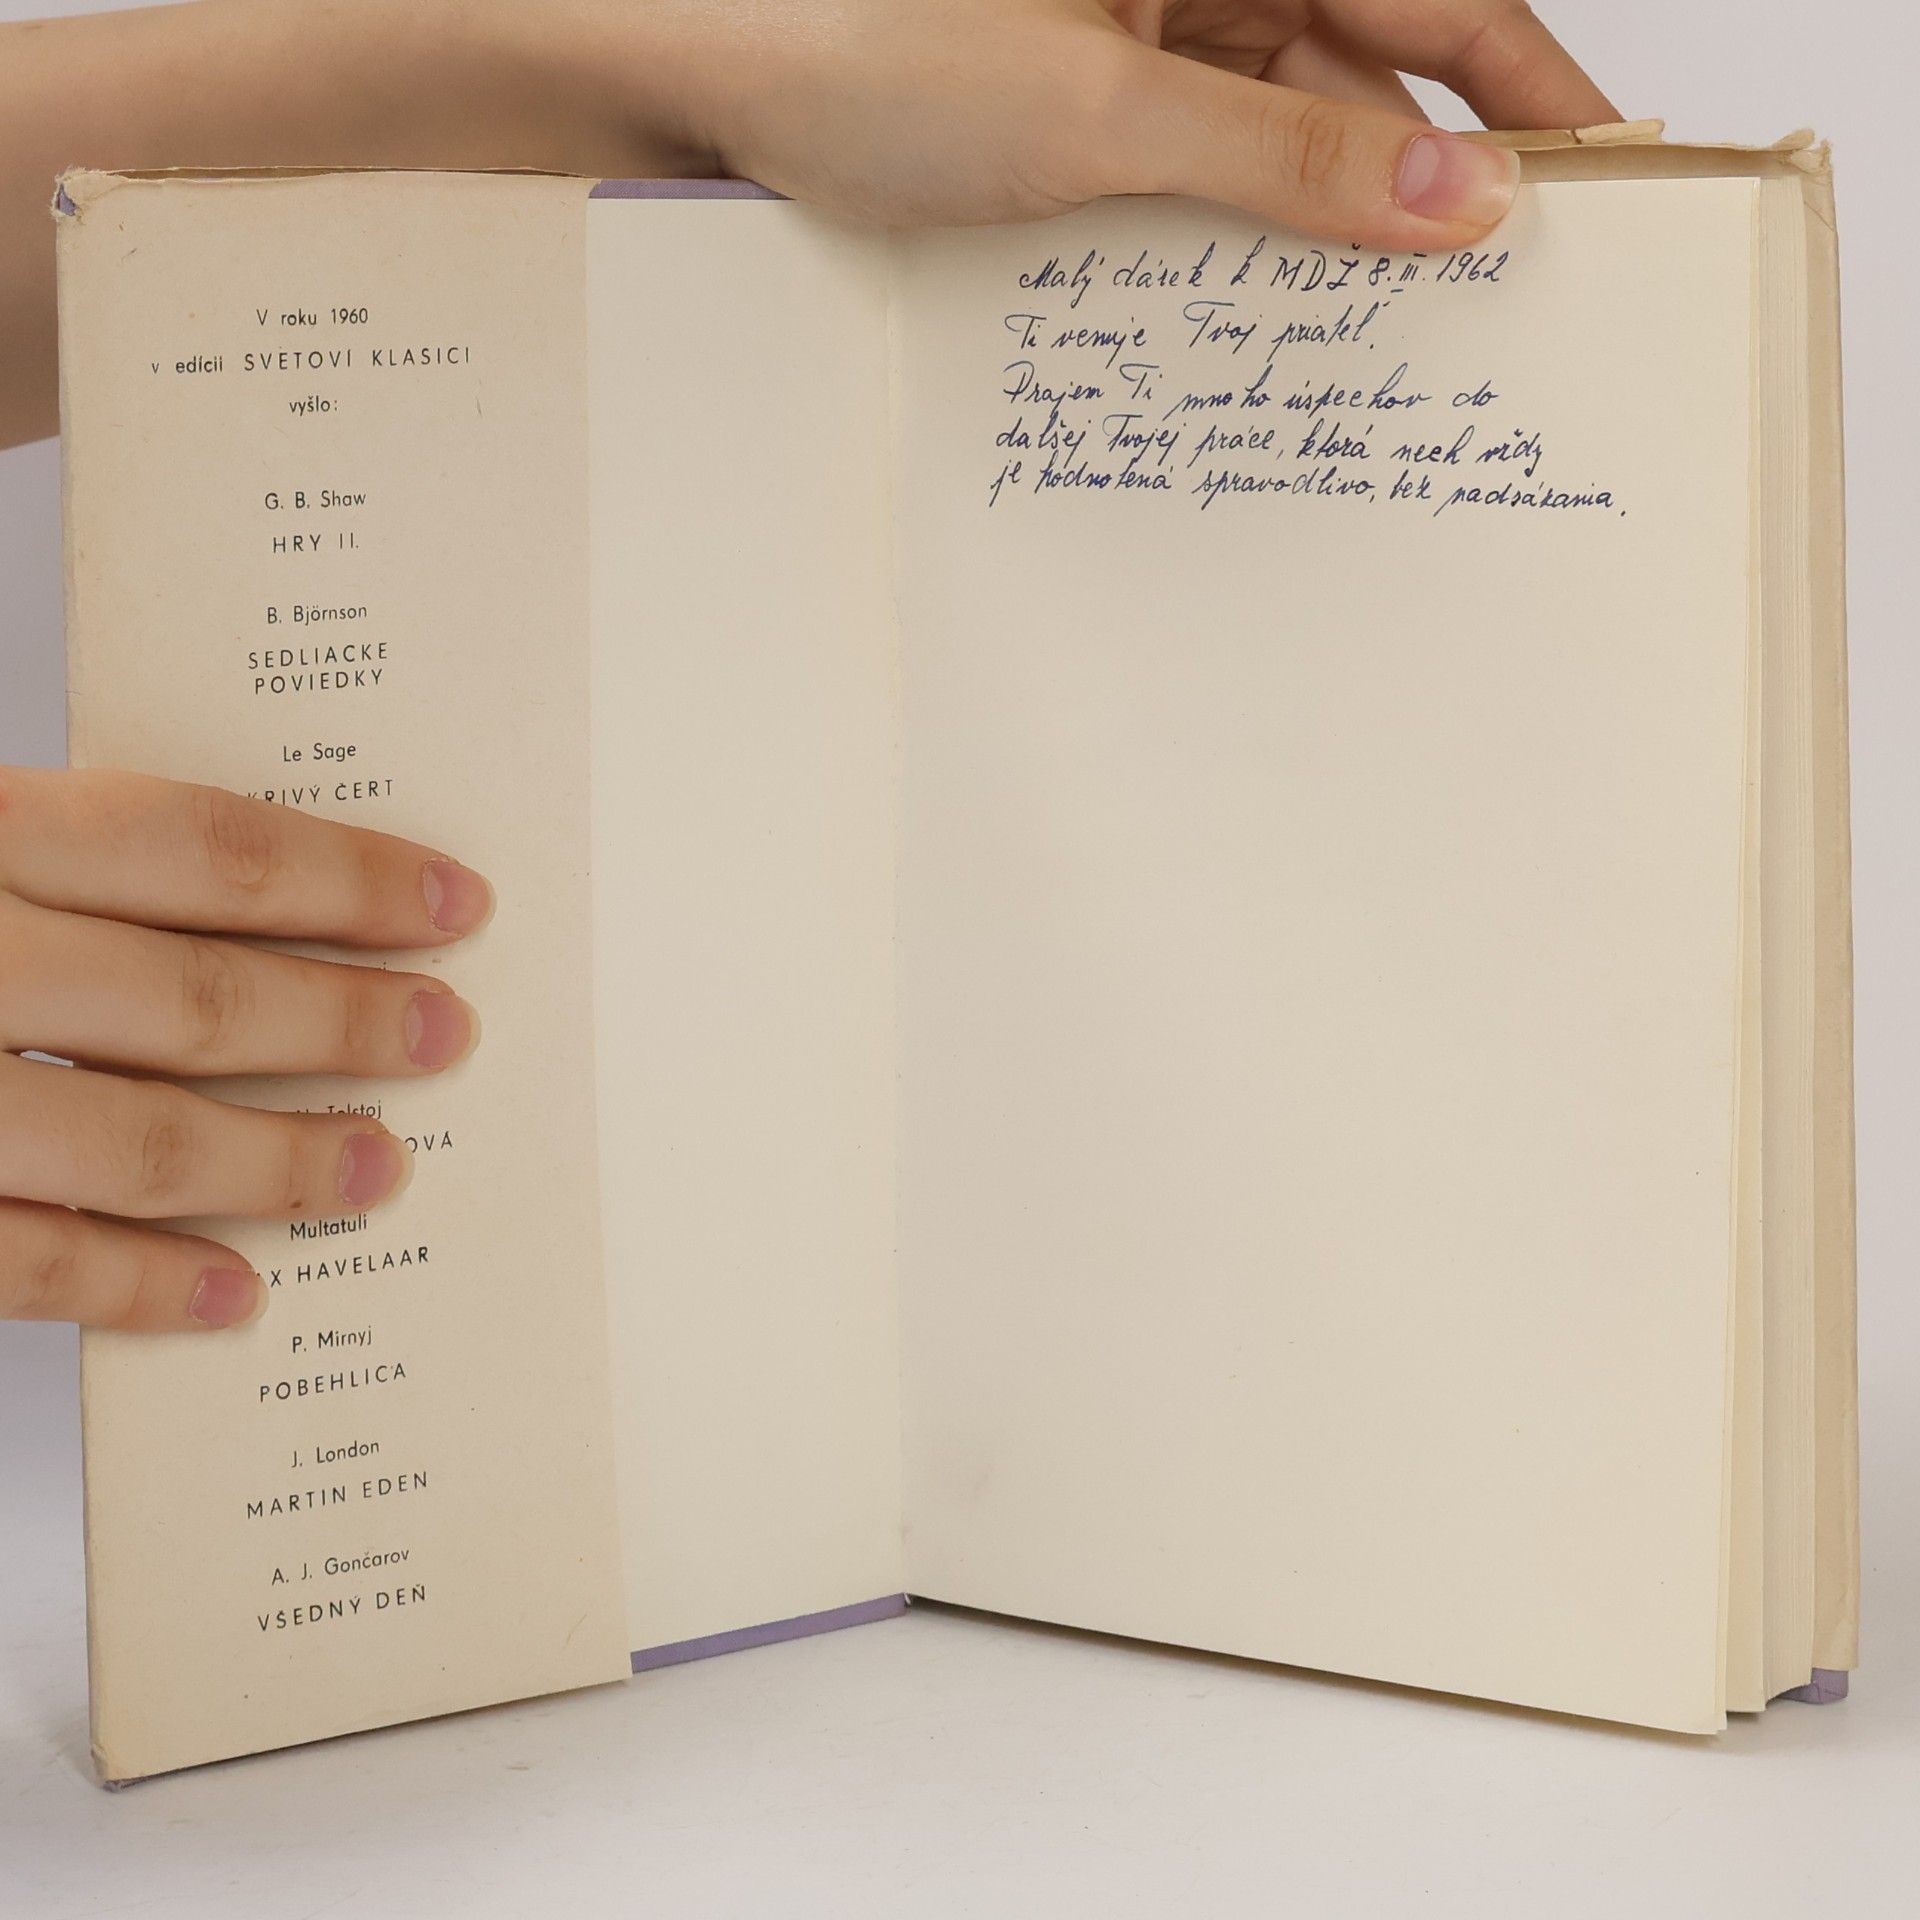 V roku 1960
v edícii SVETOVÍ KLASICI
vyšlo:
G. B. Shaw
HRY II.
B. Björnson
SEDLIACKE
POVIEDKY
Le Sage
KRIVÝ ČERT
Tolstoj
OVÁ
Multatuli
AX HAVELAAR
P. Mirnyj
POBEHLICA
J. London
MARTIN EDEN
A. J. Gončarov
VŠEDNÝ DEŇ
Malý dárek k MDŽ 8. III. 1962
Ti venuje Tvoj priateľ.
Prajem Ti mnoho úspechov do
dalšej Tvojej práce, ktorá nech vždy
je hodnotená spravodlivo, bez nadsázania.